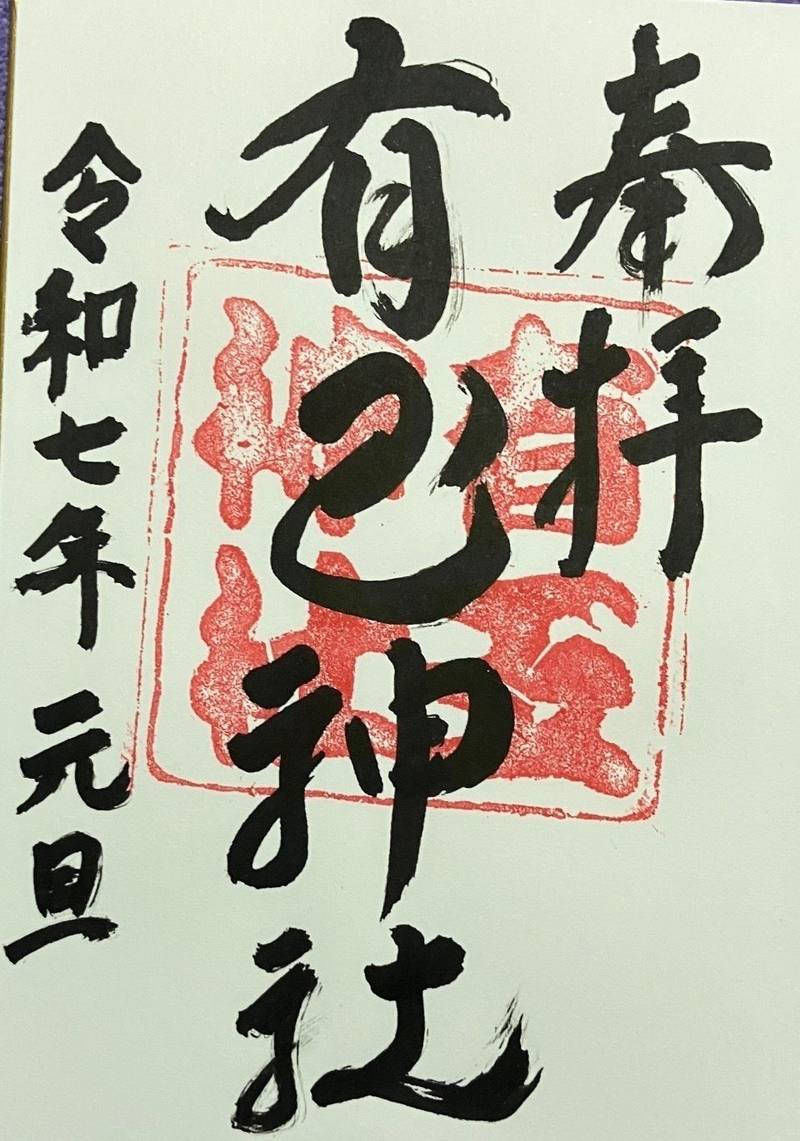 奉拝
有巳神社
令和七年 元旦